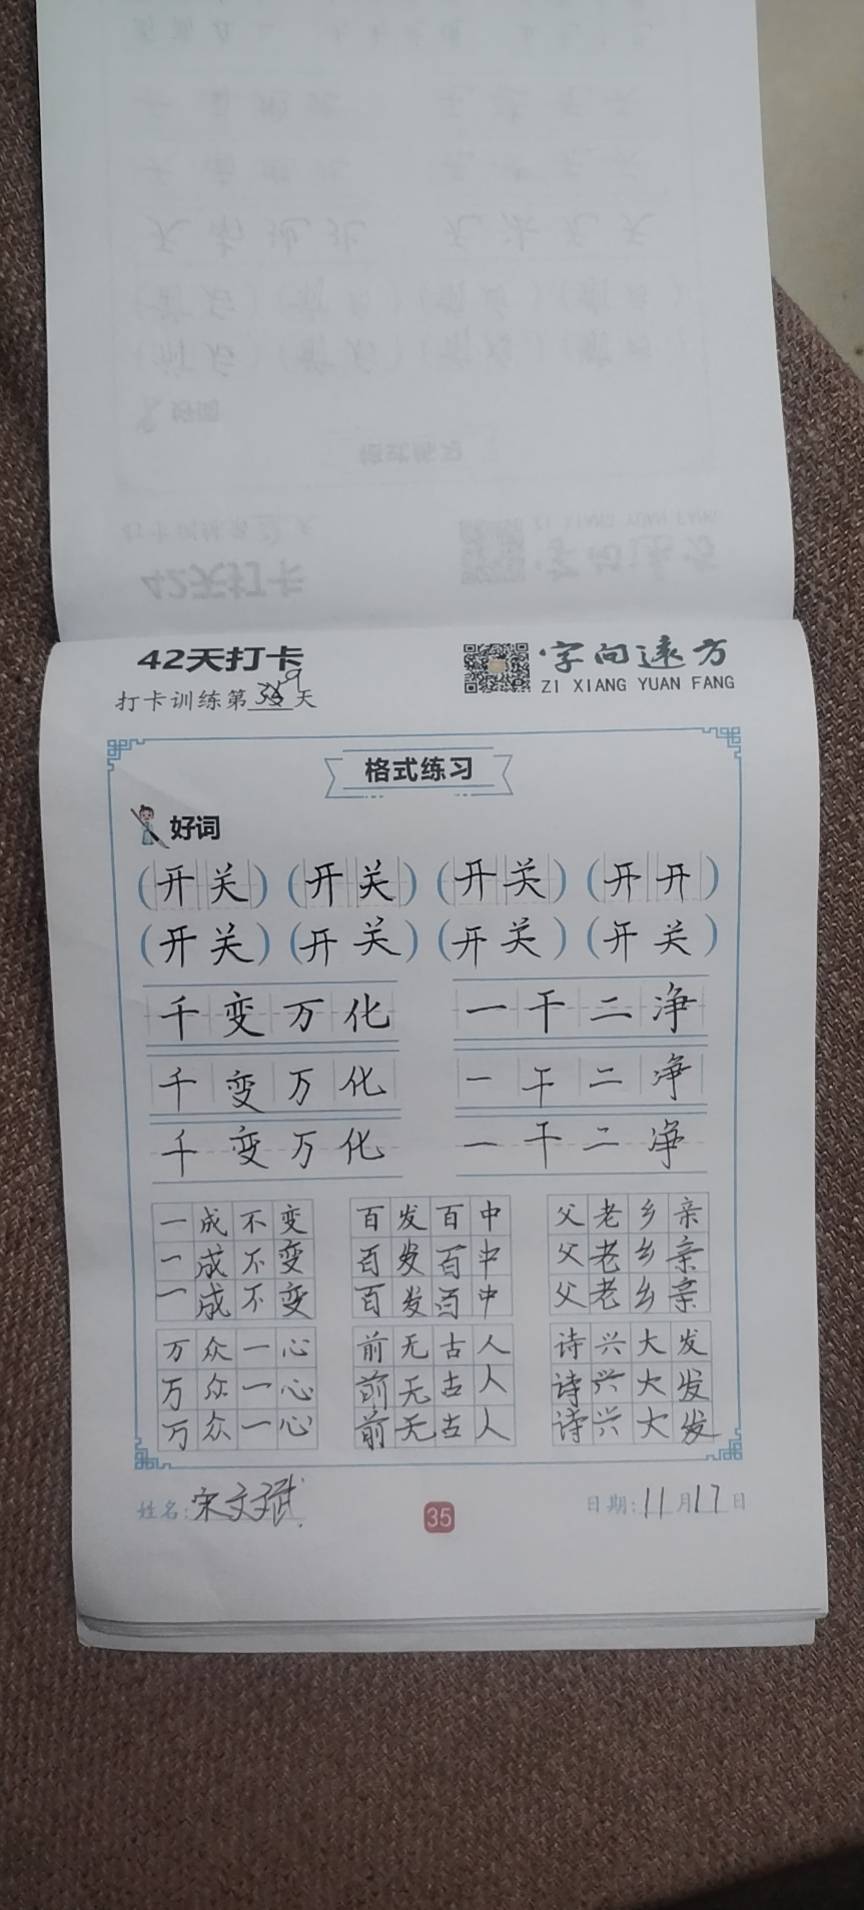 42天打卡
字向远方
ZI XIANG YUAN FANG
打卡训练第 天
格式练习
好词
(开关) (开关) (开关) (开开)
(开关) (开关) (开关) (开关)
千变万化 一干二净
千变万化 一干二净
千变万化 一干二净
一成不变 百发百中 父老乡亲
一成不变 百发百中 父老乡亲
一成不变 百发百中 父老乡亲
万众一心 前无古人 诗兴大发
万众一心 前无古人 诗兴大发
万众一心 前无古人 诗兴大发
姓名:宋文斌 35 日期:11月17日